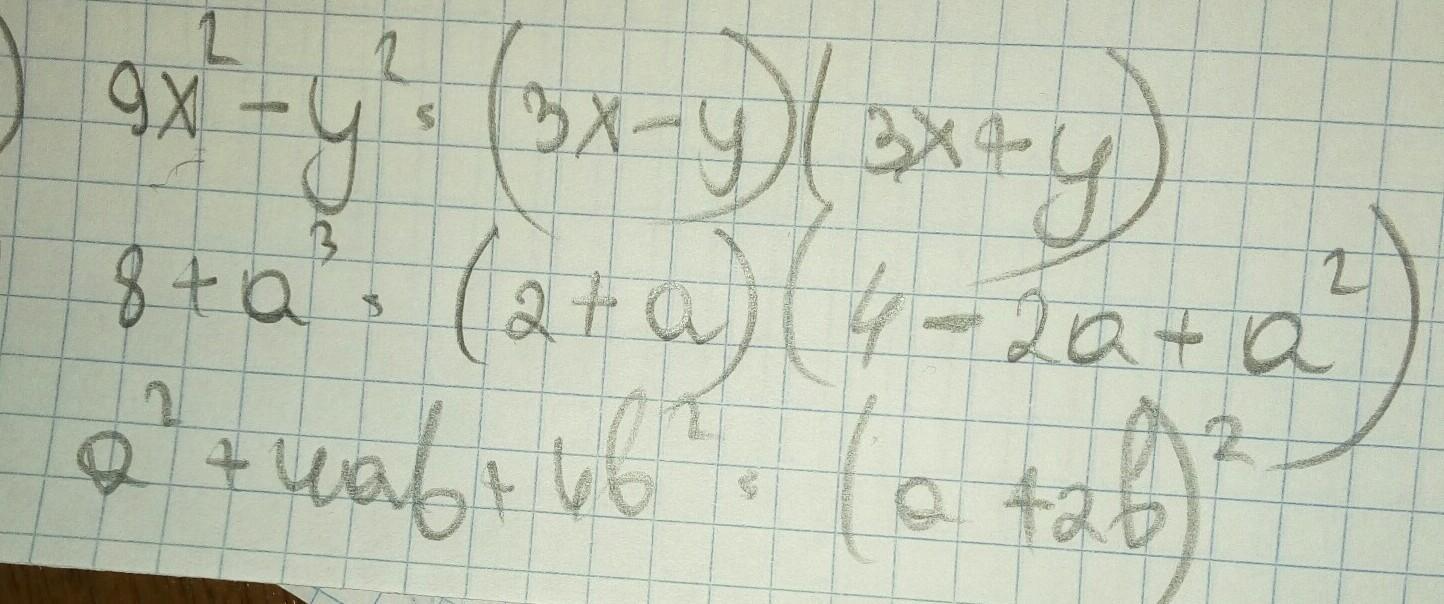 ) 9x² - y² = (3x - y)(3x + y)
8 + a³ = (2 + a)(4 - 2a + a²)
a² + 4ab + 4b² = (a + 2b)²